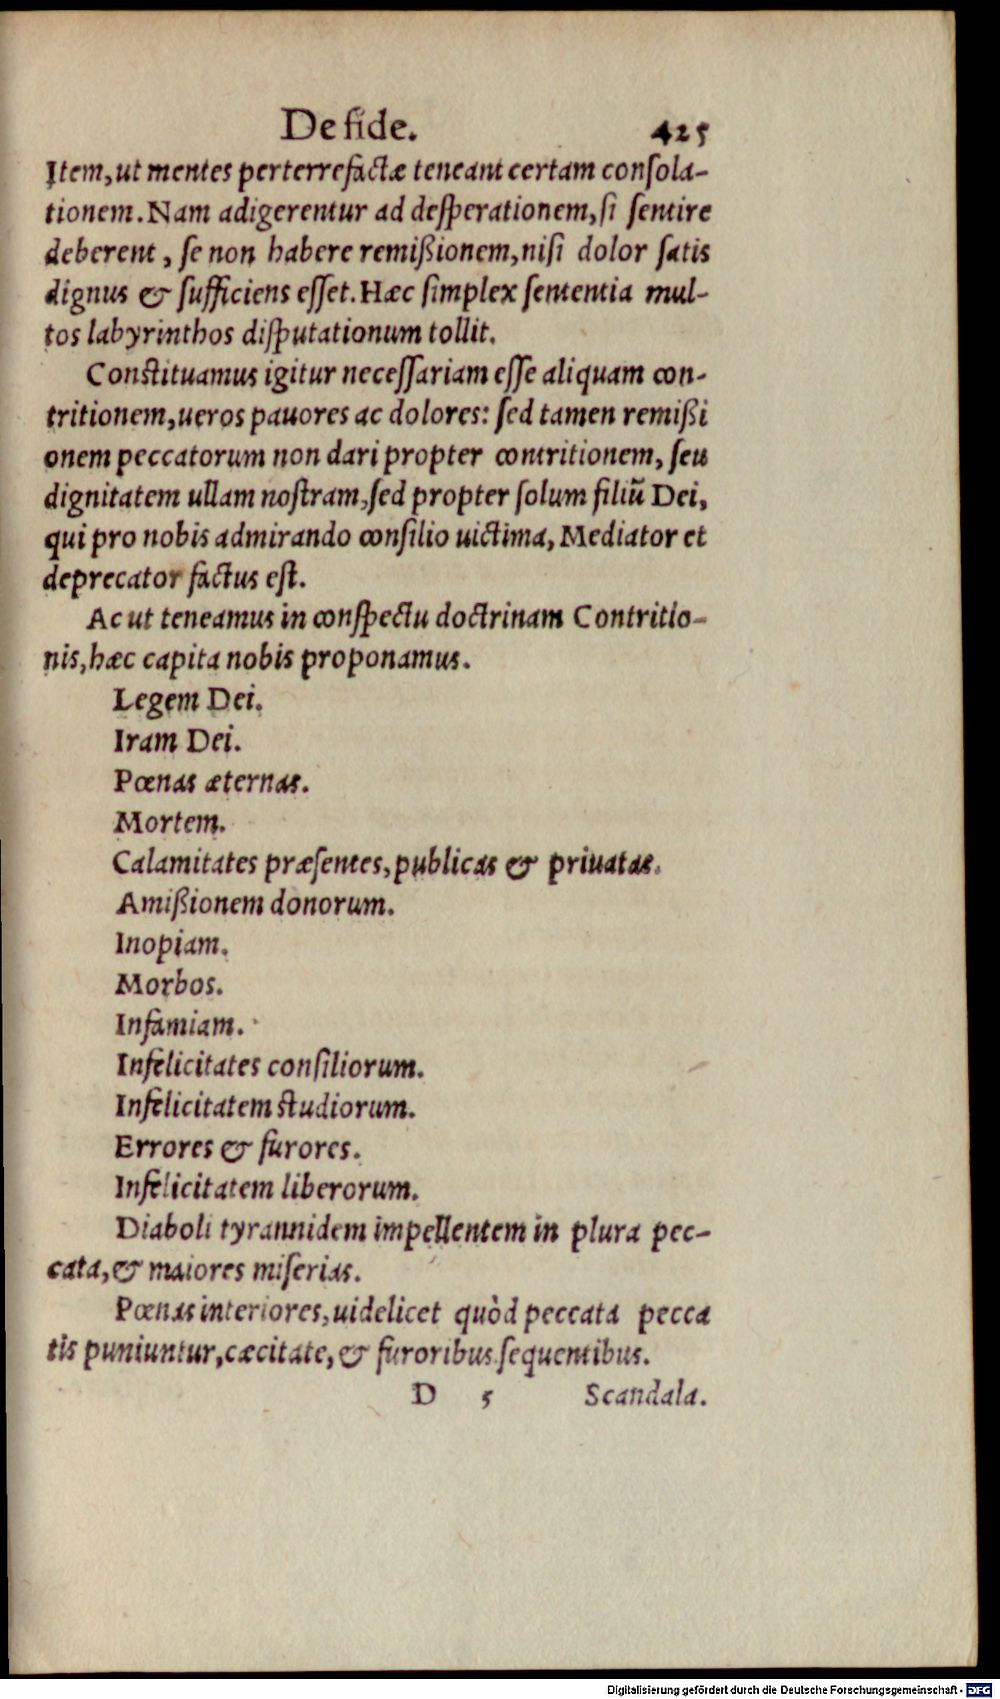 De fide. 425
Item, ut mentes perterrefactæ teneant certam conſola-
tionem. Nam adigerentur ad deſperationem, ſi ſentire
deberent, ſe non habere remißionem, niſi dolor ſatis
dignus & ſufficiens eſſet. Hæc ſimplex ſententia mul-
tos labyrinthos diſputationum tollit.
Conſtituamus igitur neceſſariam eſſe aliquam con-
tritionem, ueros pauores ac dolores: ſed tamen remißi
onem peccatorum non dari propter contritionem, ſeu
dignitatem ullam noſtram, ſed propter ſolum filiũ Dei,
qui pro nobis admirando conſilio uictima, Mediator et
deprecator factus eſt.
Ac ut teneamus in conſpectu doctrinam Contritio-
nis, hæc capita nobis proponamus.
Legem Dei.
Iram Dei.
Pœnas æternas.
Mortem.
Calamitates præſentes, publicas & priuatas.
Amißionem donorum.
Inopiam.
Morbos.
Infamiam.
Infelicitates conſiliorum.
Infelicitatem ſtudiorum.
Errores & furores.
Infelicitatem liberorum.
Diaboli tyrannidem impellentem in plura pec-
cata, & maiores miſerias.
Pœnas interiores, uidelicet quòd peccata pecca
tis puniuntur, cæcitate, & furoribus ſequentibus.
D 5 Scandala.
Digitalisierung gefördert durch die Deutsche Forschungsgemeinschaft - DFG